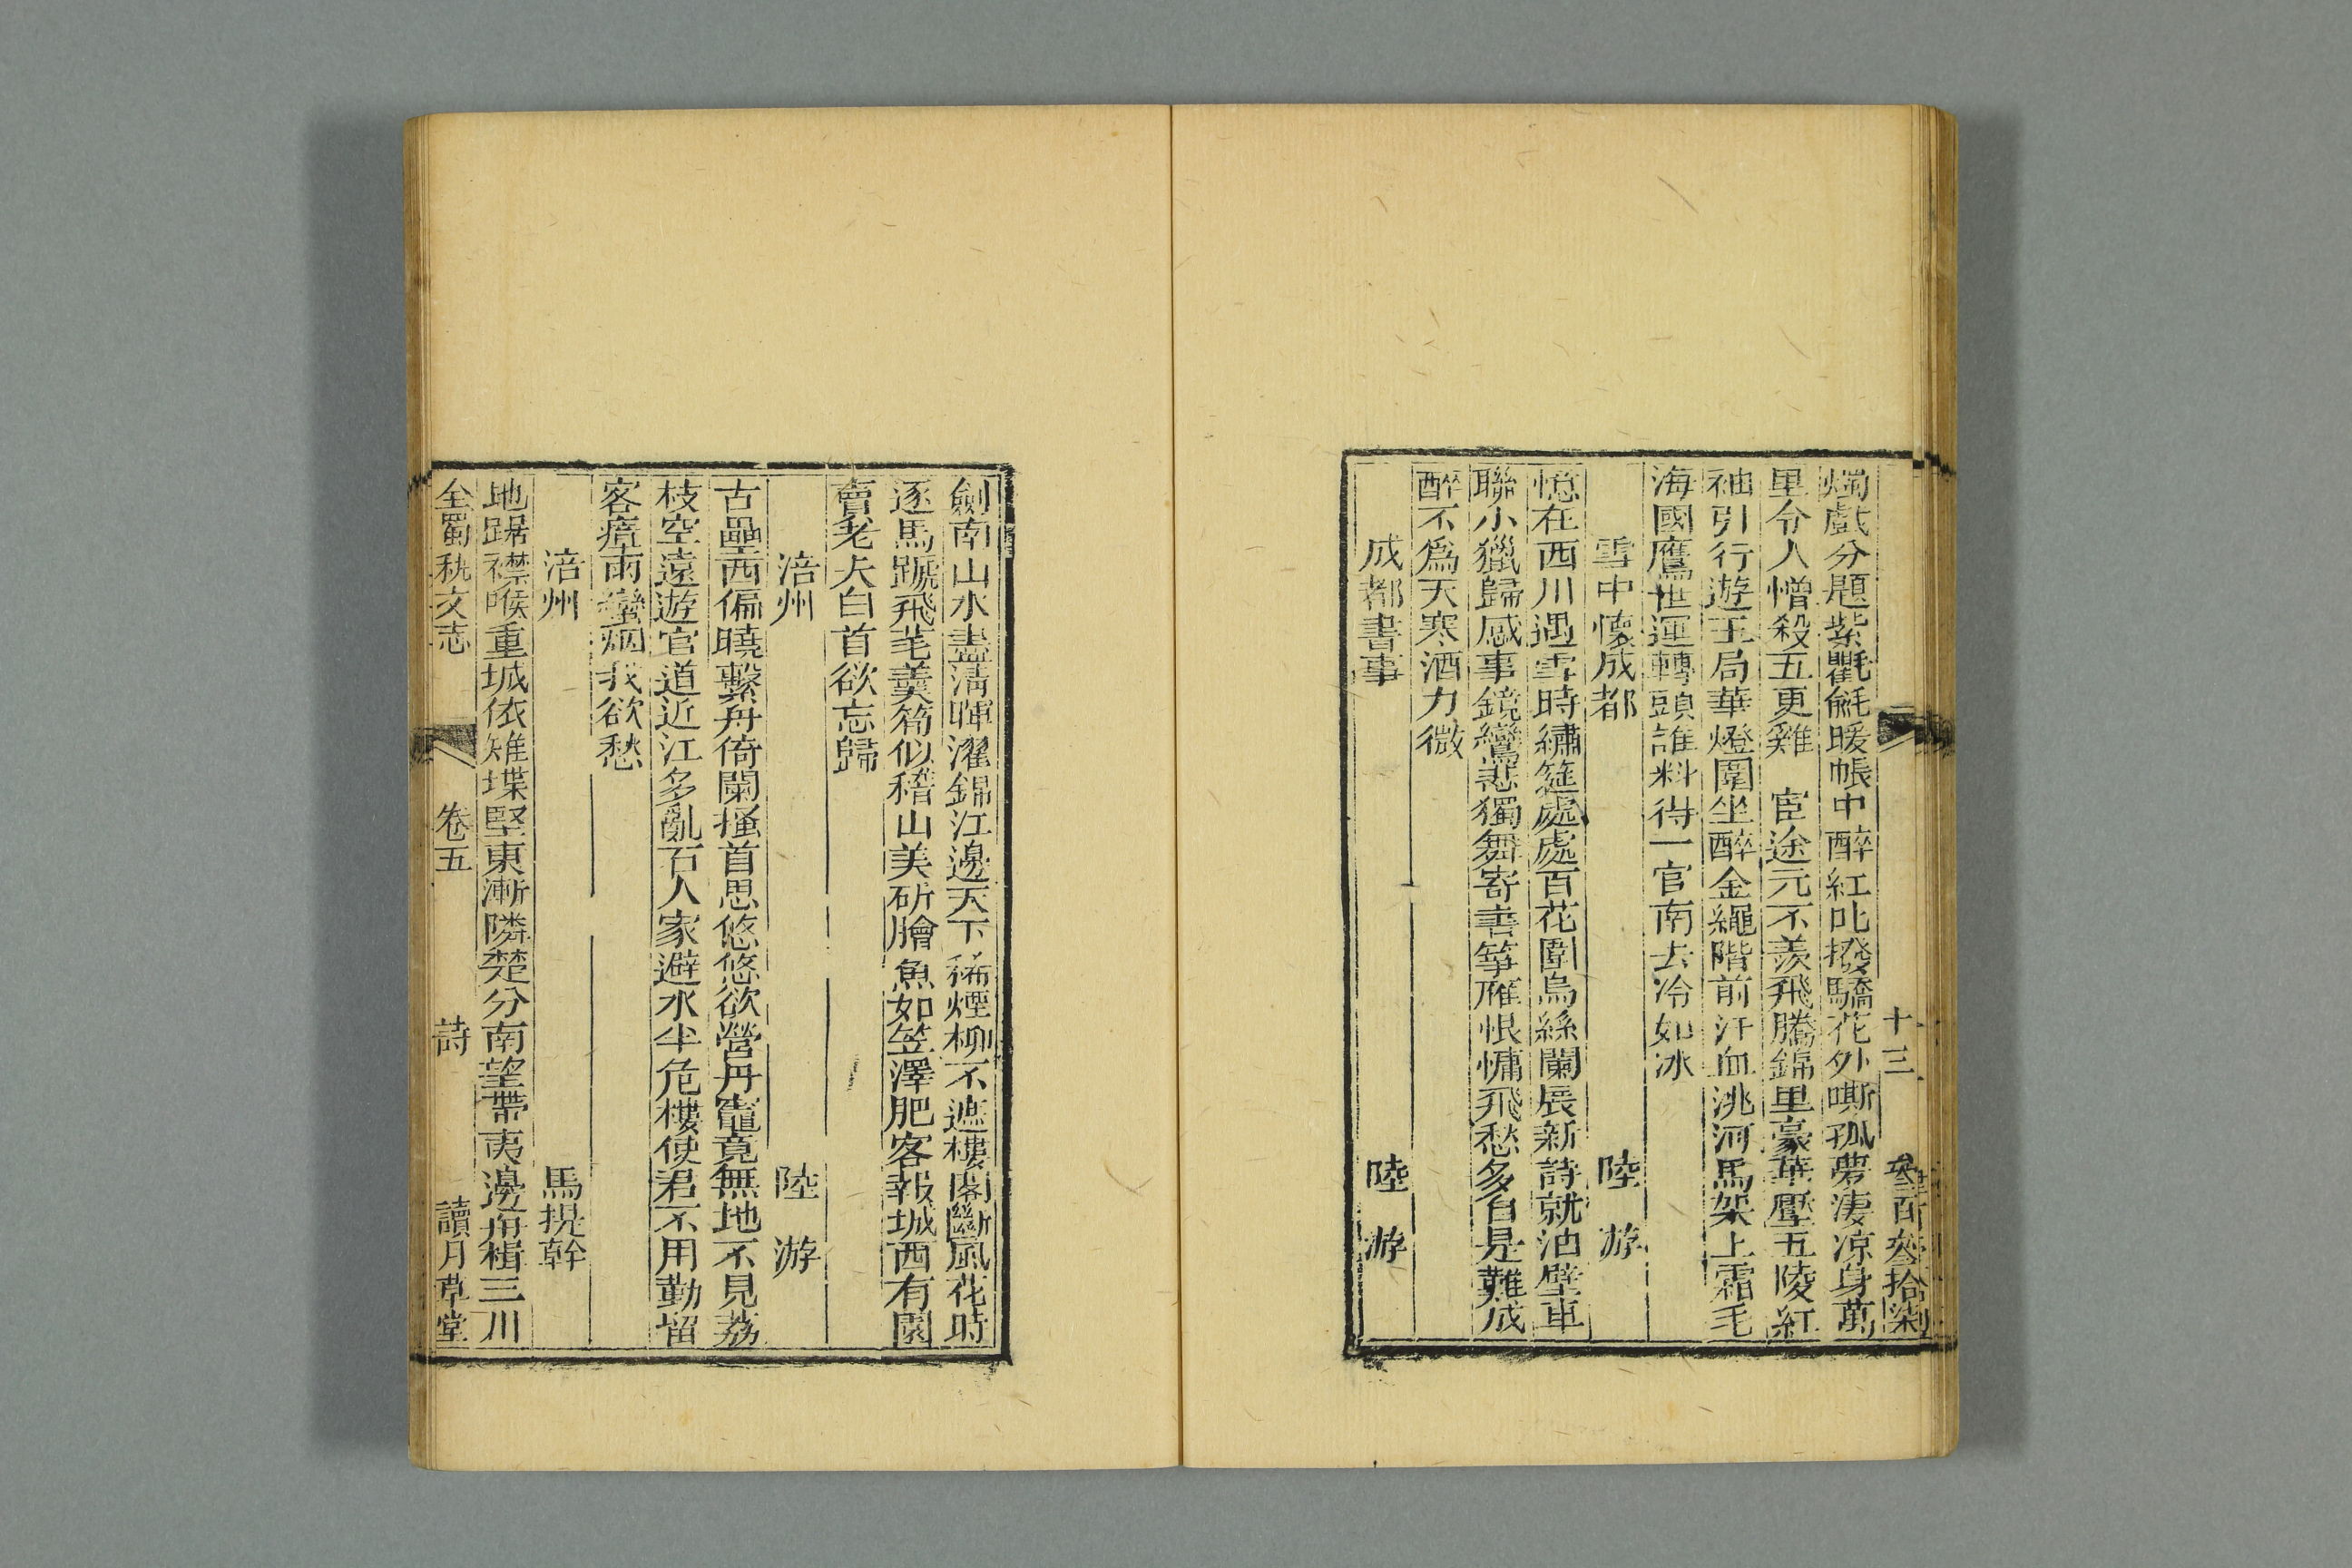 十三
燭戲分題紫氍毹暖帳中醉紅叱撥驕花外嘶孤夢淒凉身萬
里令人憎殺五更雞　宦途元不羨飛騰錦里豪華壓五陵紅
袖引行遊玉局華燈圍坐醉金繩階前汗血洮河馬架上霜毛
海國鷹世運轉頭誰料得一官南去冷如冰
雪中懷成都　陸游
憶在西川遇雪時繡筵處處百花圍烏絲闌展新詩就油壁車
聯小獵歸感事鏡鸞悲獨舞寄書箏雁恨慵飛愁多自是難成
醉不爲天寒酒力微
成都書事　陸游
劍南山水盡清暉濯錦江邊天下稀煙柳不遮樓閣斷風花時
逐馬蹏飛芼羹筍似稽山美斫膾魚如笠澤肥客報城西有園
賣老夫白首欲忘歸
涪州　陸游
古壘西偏曉繫舟倚闌搔首思悠悠欲營丹竈竟無地不見荔
枝空遠遊官道近江多亂石人家避水半危樓使君不用勤留
客瘴雨蠻烟我欲愁
涪州　馬提幹
地踞襟喉重城依雉堞堅東漸隣楚分南望帶夷邊舟楫三川
全蜀秇文志　卷五　詩　讀月草堂